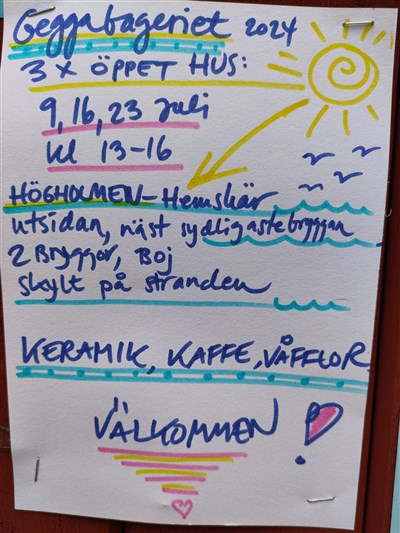 Geggabageriet 2024
3 x ÖPPET HUS:
9, 16, 23 juli
kl 13-16
HÖGHOLMEN - Hemskär
utsidan, näst sydligaste bryggan
2 Bryggor, Boj
skylt på stranden
KERAMIK, KAFFE, VÅFFLOR
VÄLKOMMEN !